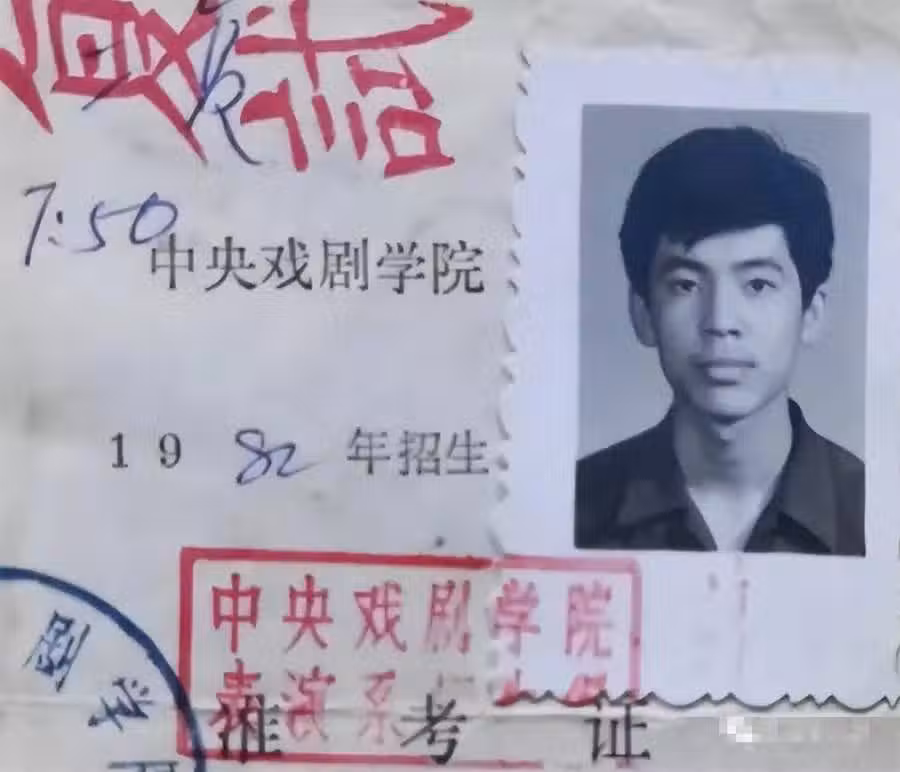 复试
7:50
中央戏剧学院
1982年招生
中央戏剧学院
表演系
准考证
剧